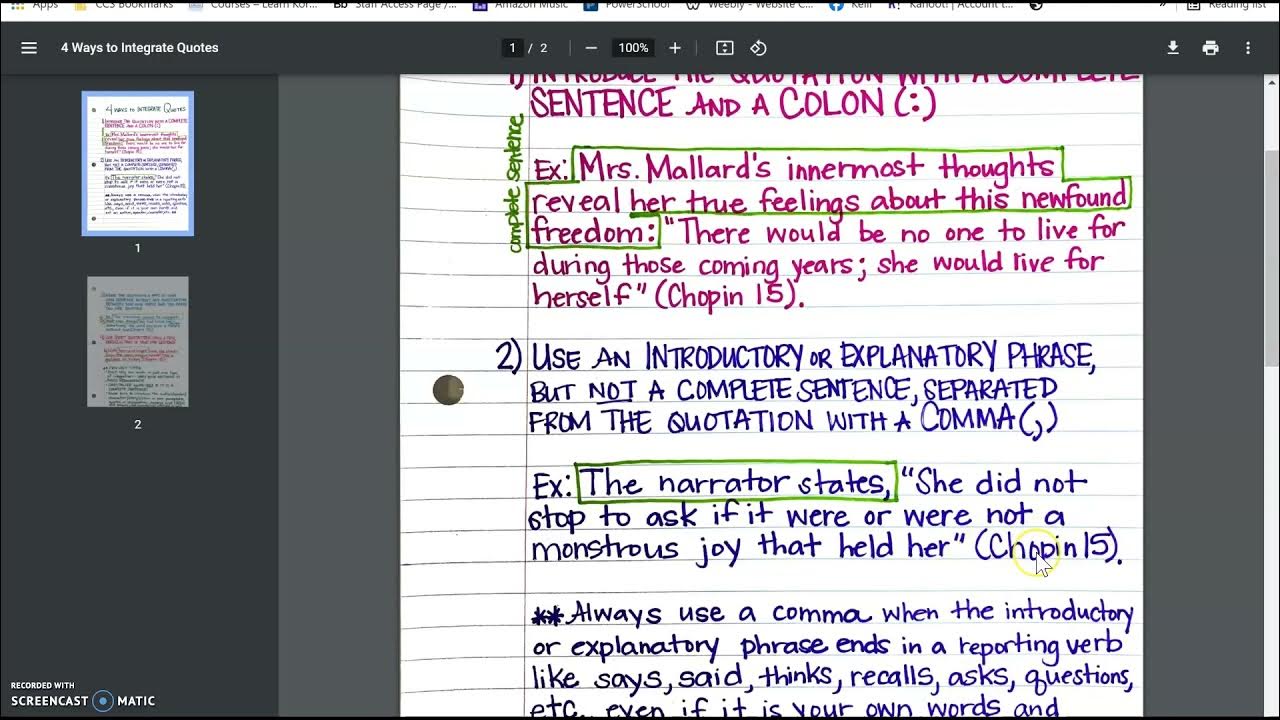 Apps CCS Bookmarks Courses – Learn Kor... Bb Staff Access Page /... Amazon Music PowerSchool Weebly - Website C... Kelli Kahoot! | Account t... » Reading list
4 Ways to Integrate Quotes 1 / 2 100%
1) INTRODUCE THE QUOTATION WITH A COMPLETE
SENTENCE AND A COLON (:)
complete sentence
Ex: Mrs. Mallard's innermost thoughts
reveal her true feelings about this newfound
freedom: "There would be no one to live for
during those coming years; she would live for
herself" (Chopin 15).
2) USE AN INTRODUCTORY OR EXPLANATORY PHRASE,
BUT NOT A COMPLETE SENTENCE, SEPARATED
FROM THE QUOTATION WITH A COMMA (,)
Ex: The narrator states, "She did not
stop to ask if it were or were not a
monstrous joy that held her" (Chopin 15).
**Always use a comma when the introductory
or explanatory phrase ends in a reporting verb
like says, said, thinks, recalls, asks, questions,
etc., even if it is your own words and
1
2
RECORDED WITH
SCREENCAST MATIC